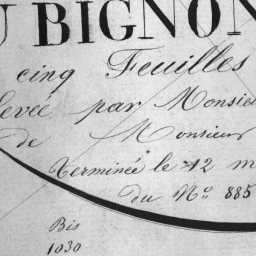 U BIGNON
cinq Feuilles
levée par Monsie
de Monsieur
Terminée le 12 m
du No. 885
Bis
1030